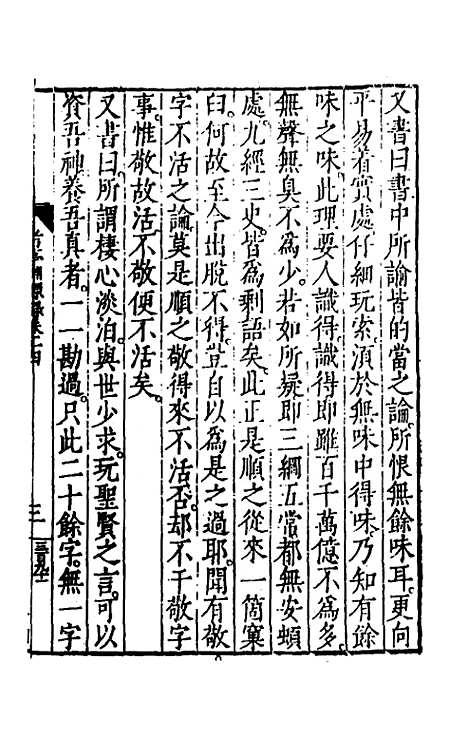 又書曰書中所諭皆的當之論所恨無餘味耳更向
平易着實處仔細玩索湏於無味中得味乃知有餘
味之味此理要人識得識得即雖百千萬億不為多
無聲無臭不為少若如所擬即三綱五常都無安頓
處九經三史皆為剩語矣此正是順之從來一箇窠
臼何故至今出脫不得豈自以為是之過耶聞有敬
字不活之論莫是順之敬得來不活否却不干敬字
事惟敬故活不敬便不活矣
又書曰所謂棲心淡泊與世少求玩聖賢之言可以
資吾神養吾真者一一勘過只此二十餘字無一字